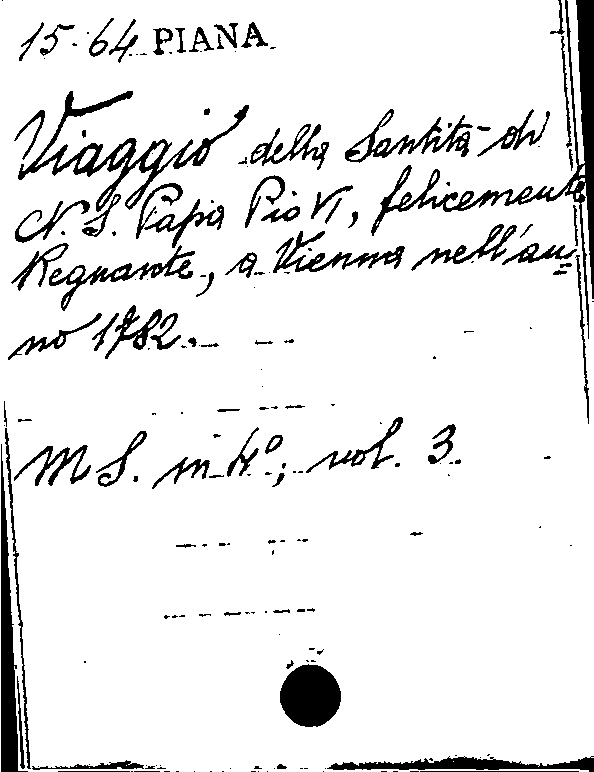 15·64 PIANA
Viaggio della Santità di
N. S. Papa Pio VI, felicemente
Regnante, a Vienna nell'an=
no 1782.
MS. in 4º; vol. 3.